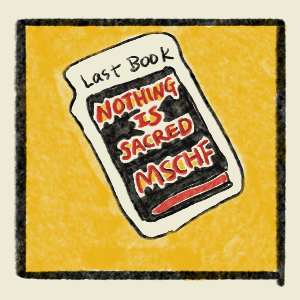 Last Book
NOTHING
IS
SACRED
MSCHF